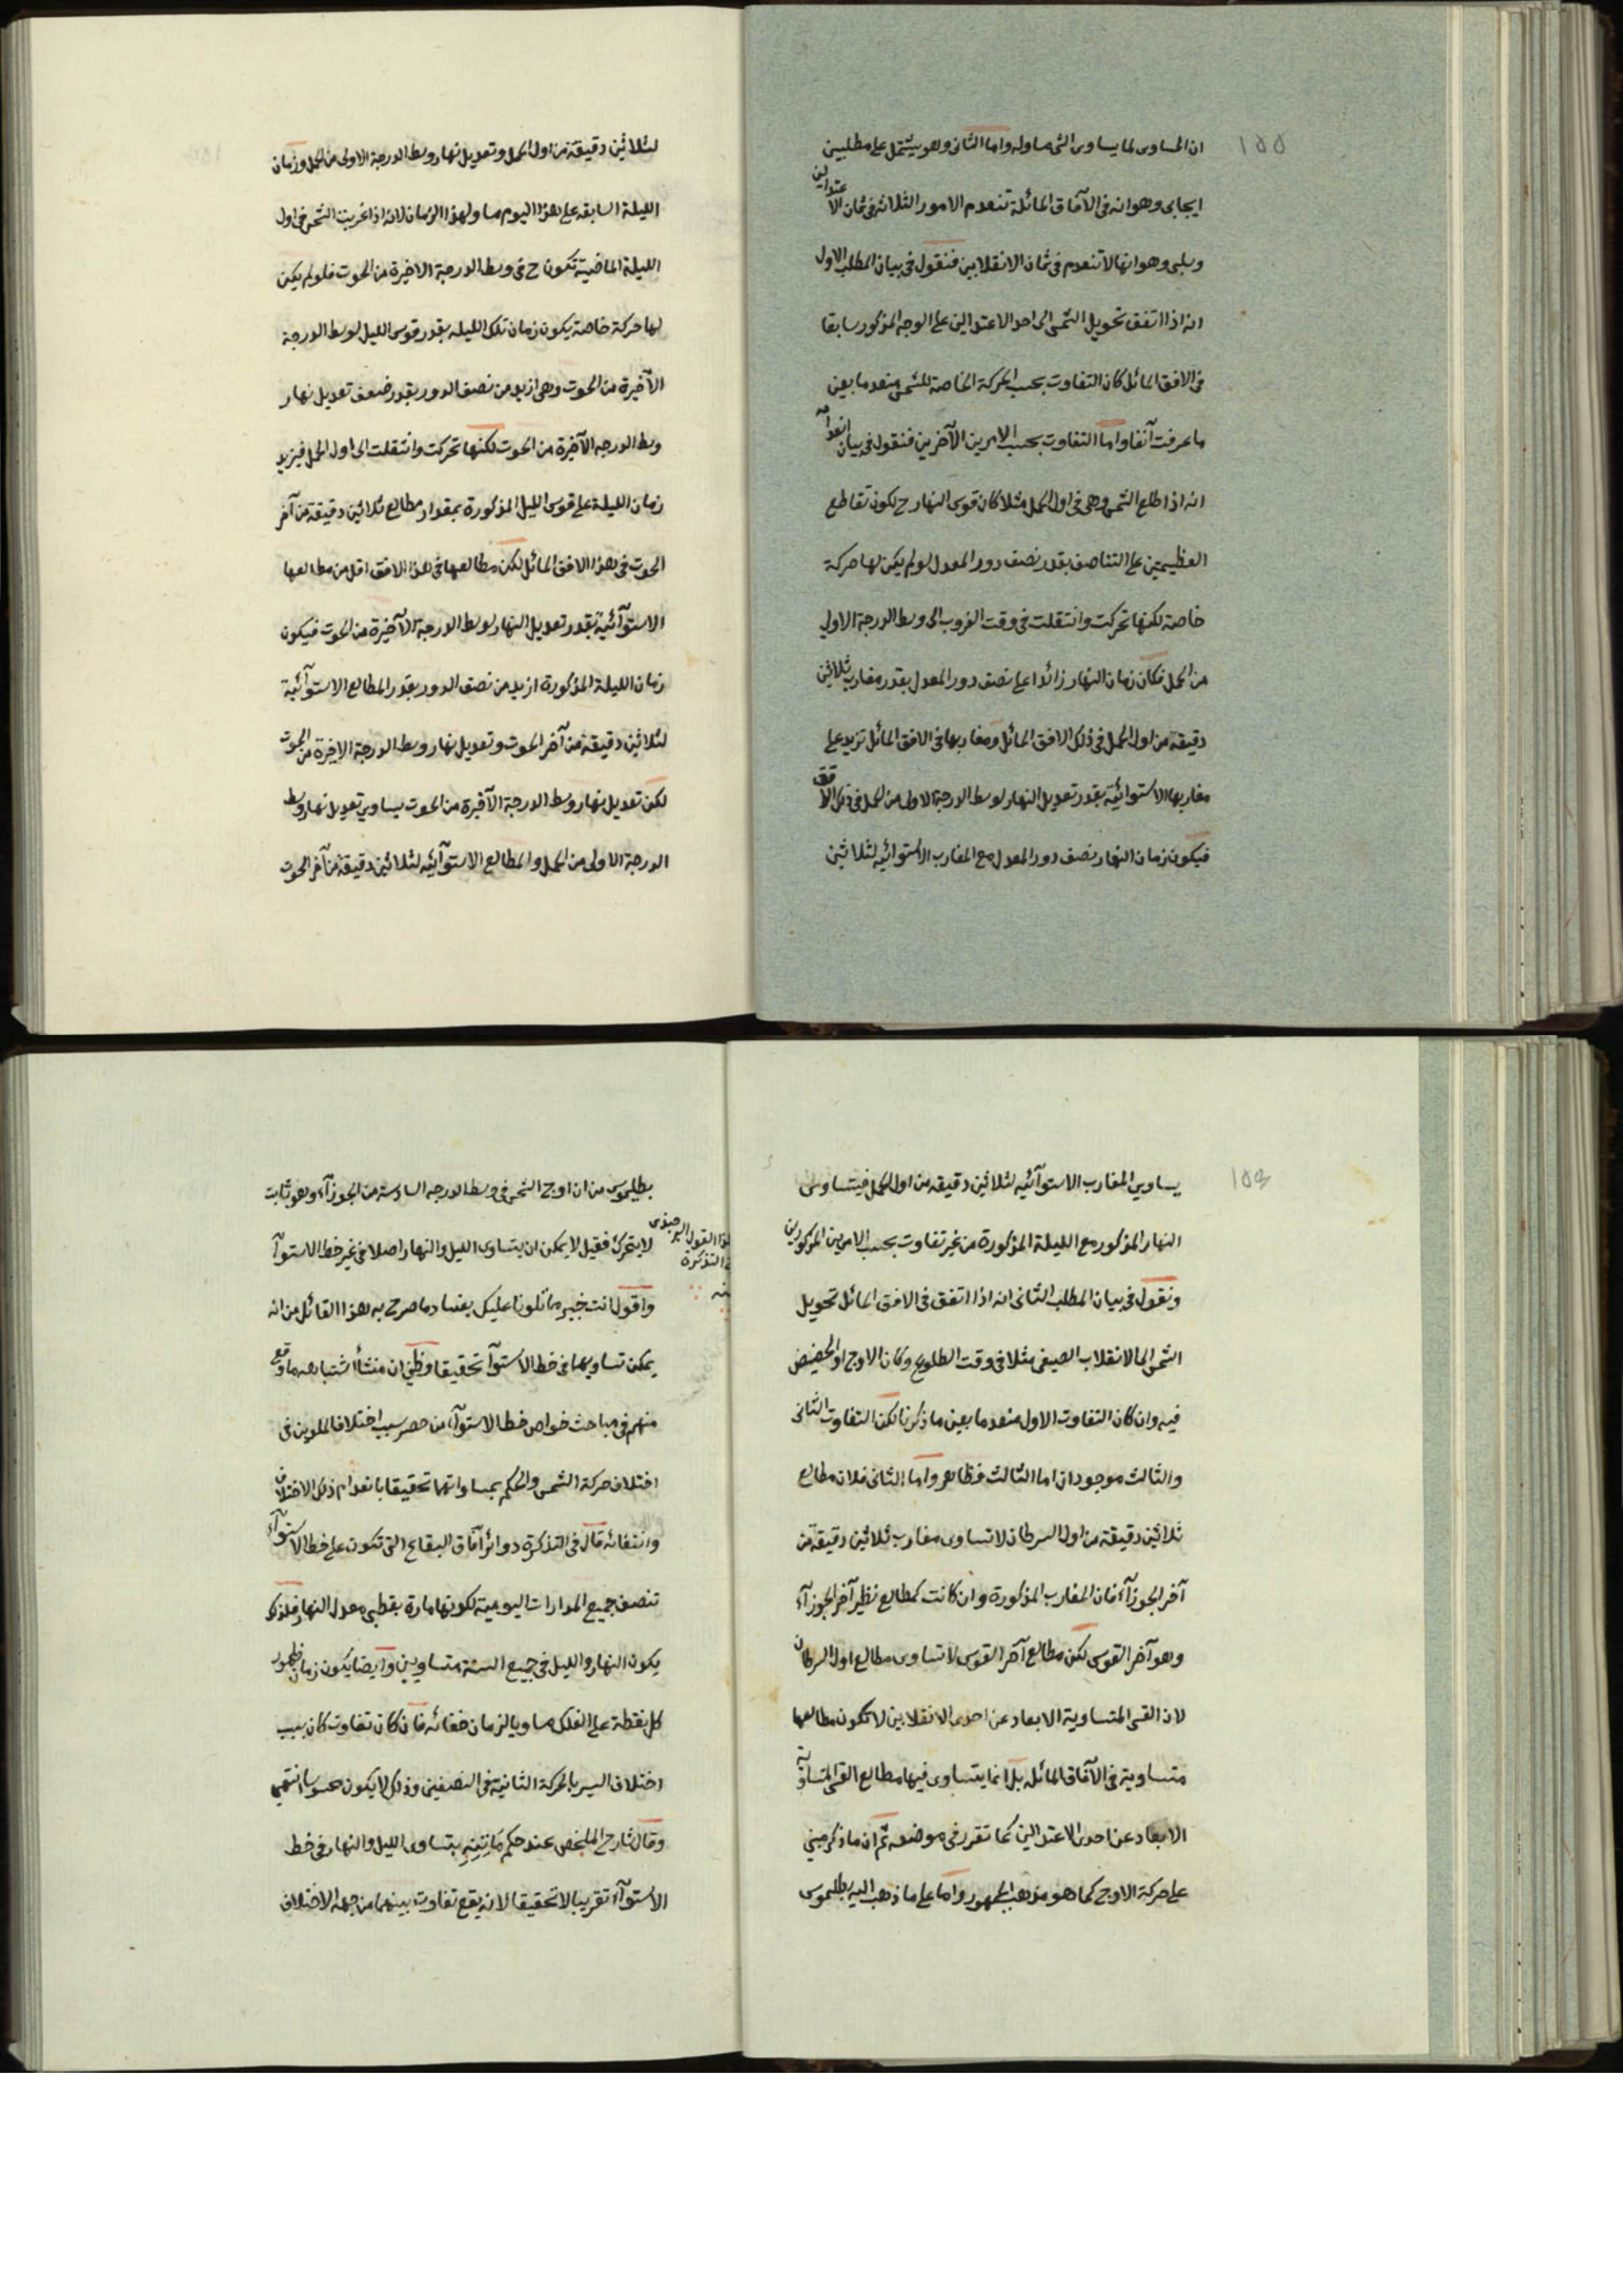 ١٥٥
ان المساوى لما يساوى الشئ مساو له واما الثانى وهو يشتمل على مطلبين
ايجابى وهو انه فى الآفاق المائلة تنعدم الامور الثلاثة فى ثمان الاعتدالين
وسلبى وهو انها لا تنعدم فى ثمان الانقلابين فنقول فى بيان المطلب الاول
انه اذا اتفق تحويل الشمس الى احد الاعتدالين على الوجه المذكور سابقا
فى الافق المائل كان التفاوت بحسب الحركة الخاصة للشمس منعدما بعين
ما عرفت آنفا واما التفاوت بحسب الامرين الآخرين فنقول فى بيان انعدامه
انه اذا طلع الشمس وهى فى اول الحمل مثلا كان قوس النهار ح لكون تقاطع
العظيمتين على التناصف بقدر نصف دور المعدل لو لم يكن لها حركة
خاصة لكنها تحركت وانتقلت فى وقت الغروب الى وسط الدرجة الاولى
من الحمل فكان زمان النهار زائدا على نصف دور المعدل بقدر مغارب ثلاثين
دقيقة من اول الحمل فى ذلك الافق المائل ومغاربها فى الافق المائل تزيد على
مغاربها الاستوائية بقدر تعديل النهار لوسط الدرجة الاولى من الحمل فى ذلك الافق
فيكون زمان النهار نصف دور المعدل مع المغارب الاستوائيه لثلاثين
لثلاثين دقيقة من اول الحمل وتعديل نهار وسط الدرجة الاولى من الحمل وزمان
الليلة السابقة على هذا اليوم مساو لهذا الزمان لانه اذا غربت الشمس فى اول
الليلة الماضية تكون ح فى وسط الدرجة الاخيرة من الحوت فلو لم يكن
لها حركة خاصة يكون زمان تلك الليله بقدر قوس الليل لوسط الدرجة
الآخيرة من الحوت وهى ازيد من نصف الدور بقدر ضعف تعديل نهار
وسط الدرجه الآخيرة من الحوت لكنها تحركت وانتقلت الى اول الحمل فيزيد
زمان الليلة على قوس الليل المذكورة بمقدار مطالع ثلاثين دقيقة من آخر
الحوت فى هذا الافق المائل لكن مطالعها فى هذا الافق اقل من مطالعها
الاستوآئية بقدر تعديل النهار لوسط الدرجة الآخيرة من الحوت فيكون
زمان الليلة المذكورة ازيد من نصف الدور بقدر المطالع الاستوآئية
لثلاثين دقيقة من آخر الحوت وتعديل نهار وسط الدرجة الاخيرة من الحوت
لكن تعديل نهار وسط الدرجة الآخيرة من الحوت يساوي تعديل نهار وسط
الدرجة الاولى من الحمل والمطالع الاستوآئيه لثلاثين دقيقة من آخر الحوت
يساوي المغارب الاستوآئيه لثلاثين دقيقه من اول الحمل فيتساوى
النهار المذكور مع الليلة المذكورة من غير تفاوت بحسب الامرين المذكورين
ونقول فى بيان المطلب الثانى انه اذا اتفق فى الافق المائل تحويل
الشمس الى الانقلاب الصيفى مثلا فى وقت الطلوع وكان الاوج او الحضيض
فيه وان كان التفاوت الاول منعدما بعين ما ذكرنا لكن التفاوت الثانى
والثالث موجودان اما الثالث فظاهر واما الثانى فلان مطالع
ثلاثين دقيقة من اول السرطان لا تساوى مغارب ثلاثين دقيقة من
آخر الجوزآء فان المغارب المذكورة وان كانت كمطالع نظير آخر الجوزآء
وهو آخر القوس لكن مطالع آخر القوس لا تساوى مطالع اول السرطان
لان القسى المتساوية الابعاد عن احدى الانقلابين لا تكون مطالعها
متساوية فى الآفاق المائله بل انما يتساوى فيها مطالع القسى المتساوية
الابعاد عن احدى الاعتدالين كما تقرر فى موضعه ثم ان ما ذكر مبنى
على حركة الاوج كما هو مذهب الجمهور واما على ما ذهب اليه بطلميوس
بطلميوس من ان اوج الشمس فى وسط الدرجه السادسة من الجوزآء وهو ثابت
لا يتحرك فقيل لا يمكن ان يتساوى الليل والنهار اصلا فى غير خط الاستوآ
واقول انت خبير مما تلونا عليك بفساد ما صرح به هذا القائل من انه
يمكن تساويهما فى خط الاستوآ تحقيقا وظنى ان منشأ اشتباهه ما وقع
منهم فى مباحث خواص خط الاستوآء من حصر سبب اختلاف الملوين فى
اختلاف حركة الشمس والحكم بمساواتهما تحقيقا بانعدام ذلك الاختلاف
وانتفائه قال فى التذكرة دوائر آفاق البقاع التى تكون على خط الاستوآء
تنصف جميع المدارات اليوميه لكونها مارة بقطبى معدل النهار فلذلك
يكون النهار والليل فى جميع السنة متساويين وايضا يكون زمان ظهور
كل نقطة على الفلك مساويا لزمان خفائه فان كان تفاوت كان بسبب
اختلاف السير بالحركة الثانية فى النصفين وذلك لا يكون محسوسا انتهى
وقال شارح الملخص عند حكم ماتنه بتساوى الليل والنهار فى خط
الاستوآء تقريبا لا تحقيقا لانه يقع تفاوت بينهما من جهة الاختلاف